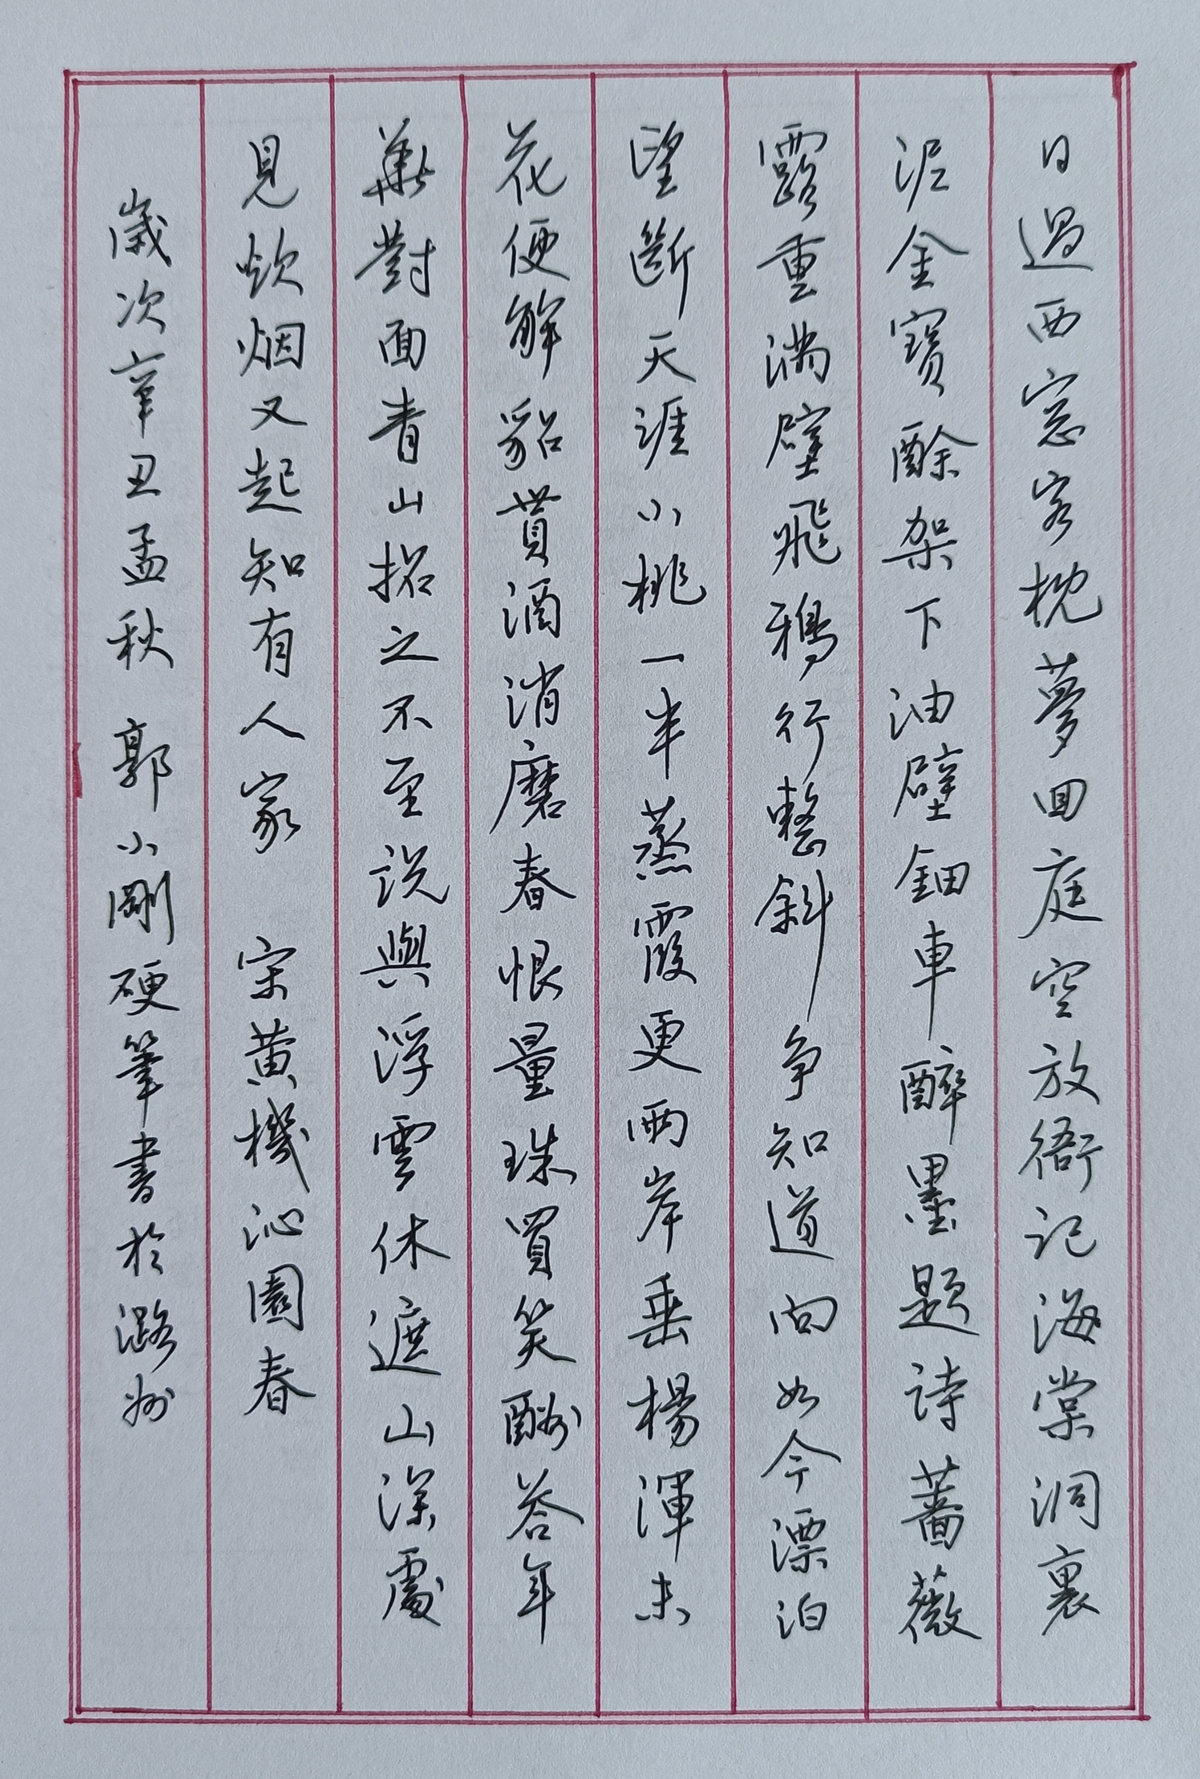 日過西窓客枕夢回庭空放衙記海棠洞裏
泥金寶酴架下油壁鈿車醉墨題詩薔薇
露重滿壁飛鴉行整斜争知道向如今漂泊
望斷天涯小桃一半蒸霞更兩岸垂楊渾未
花便解貂貰酒消磨春恨量珠買笑酬答年
華對面青山招之不至説與浮雲休遮山深處
見炊烟又起知有人家 宋黄機沁園春
歲次辛丑孟秋 郭小剛硬筆書於潞州